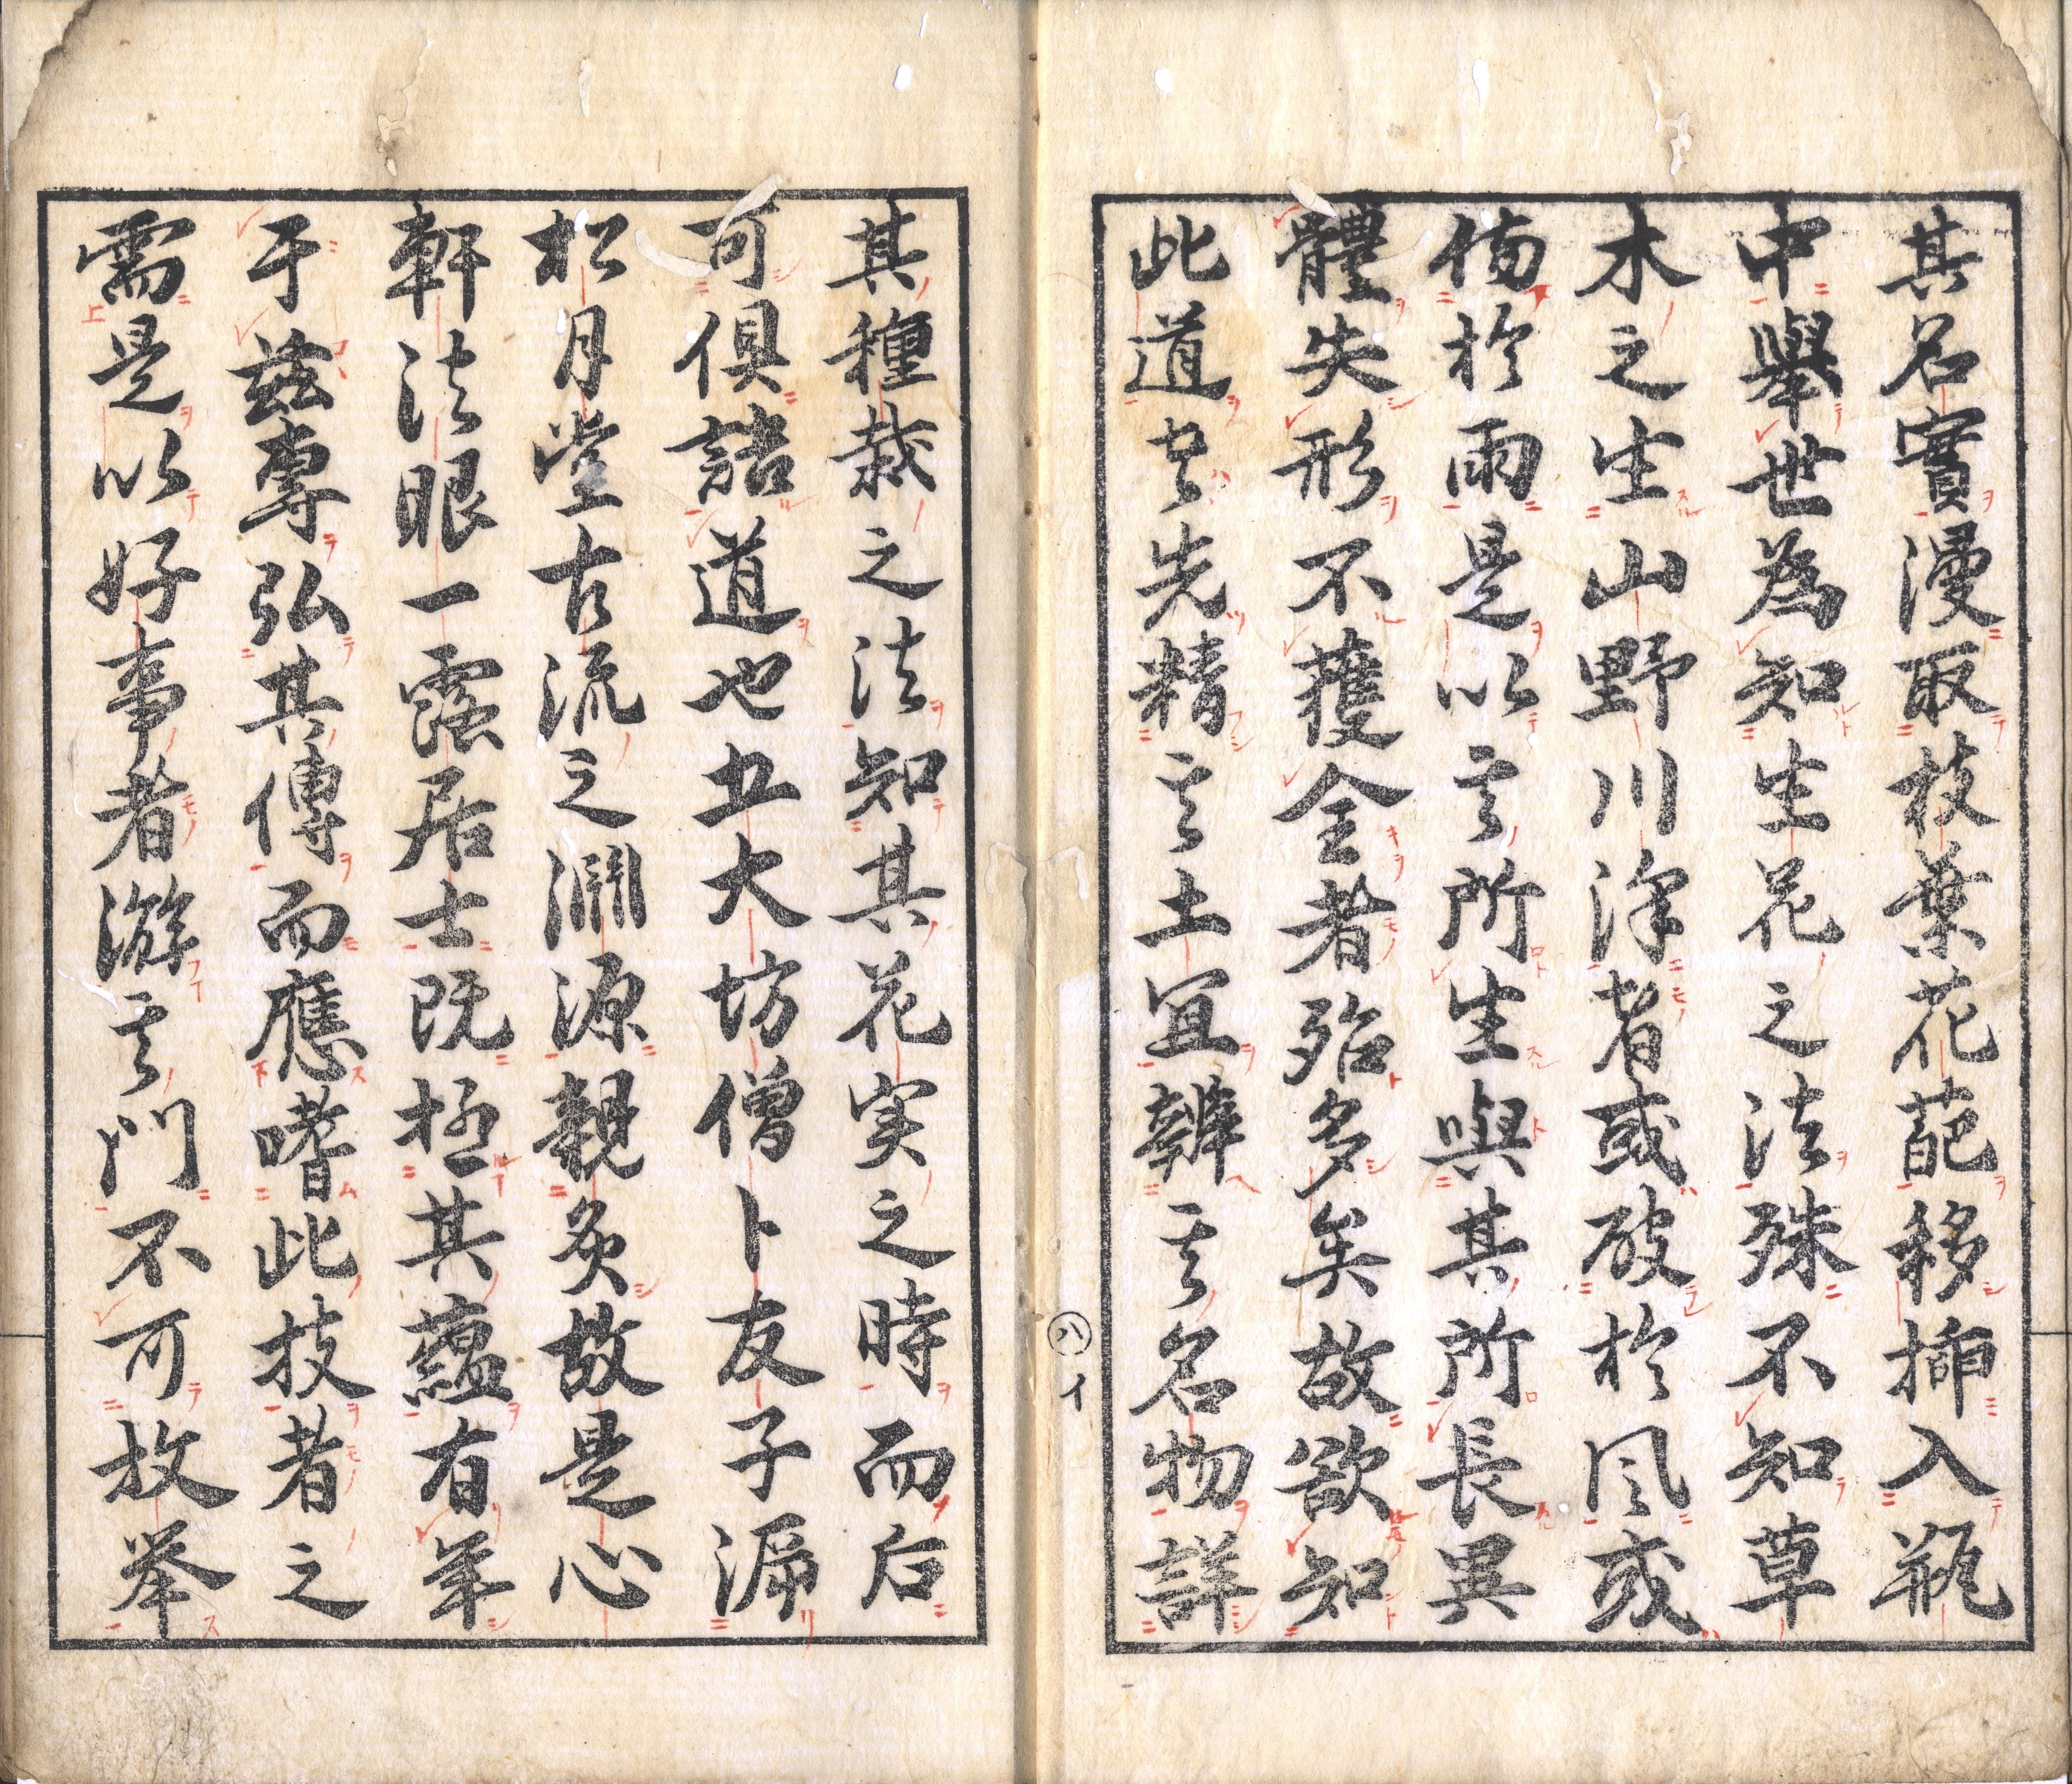 其名實漫取枝葉花葩移挿入瓶
中舉世為知生花之法殊不知草
木之生山野川澤者或破於风或
傷於雨是以其所生與其所長異
體失形不獲全者殆多矣故欲知
此道者先精其土宜辨其名物詳
其種栽之法知其花実之時而后
可俱語道也五大坊僧卜友子
松月堂古流之淵源親炙故是心
軒法眼一露居士既極其蘊有年
于茲專弘其傳而應嗜此技者之
需是以好事者游其門不可枚挙
八イ